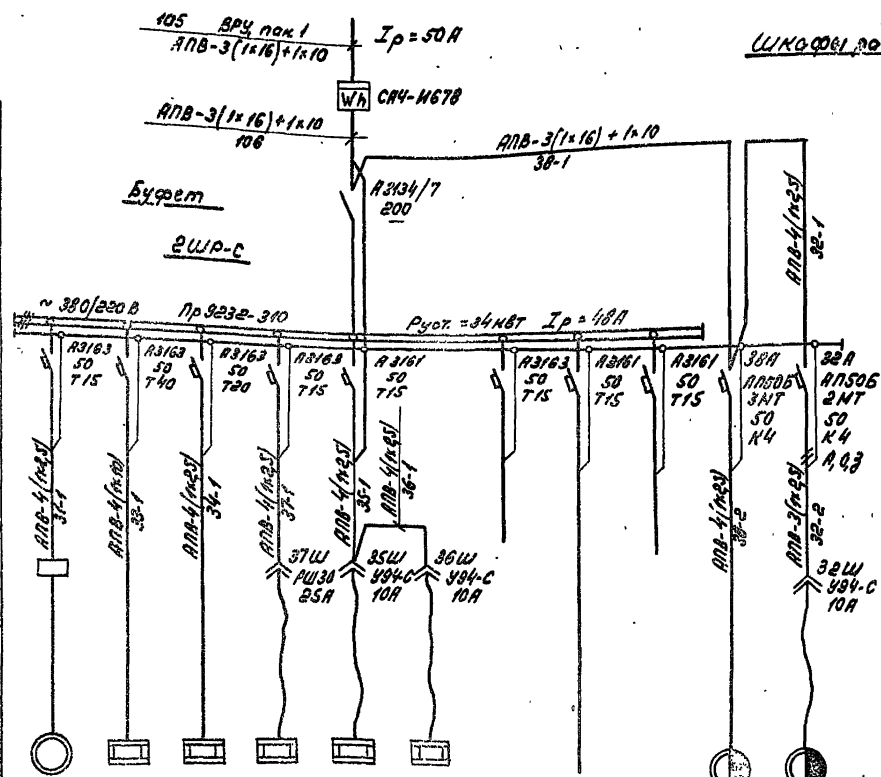 105 ВРУ, пак 1
АПВ-3(1×16)+1×10
Iр=50А
Шкафы ра
Wh
СА4-И678
АПВ-3(1×16)+1×10
106
АПВ-3(1×16)+1×10
38-1
Буфет
А3134/7
200
2ШР-С
АПВ-4(1×2,5)
32-1
~380/220В
Пр9232-310
Руст.=34кВт
Iр=48А
А3163
50
Т15
А3163
50
Т40
А3163
50
Т20
А3163
50
Т15
А3161
50
Т15
А3163
50
Т15
А3161
50
Т15
А3161
50
Т15
38А
АП50Б
3МТ
50
К4
32А
АП50Б
2МТ
50
К4
А,0,З
АПВ-4(1×2,5)
31-1
АПВ-4(1×10)
33-1
АПВ-4(1×2,5)
34-1
АПВ-4(1×2,5)
37-1
АПВ-4(1×2,5)
35-1
АПВ-4(1×2,5)
36-1
АПВ-4(1×2,5)
38-2
АПВ-3(1×2,5)
32-2
37Ш
РШ30
25А
35Ш
У94-С
10А
36Ш
У94-С
10А
32Ш
У94-С
10А